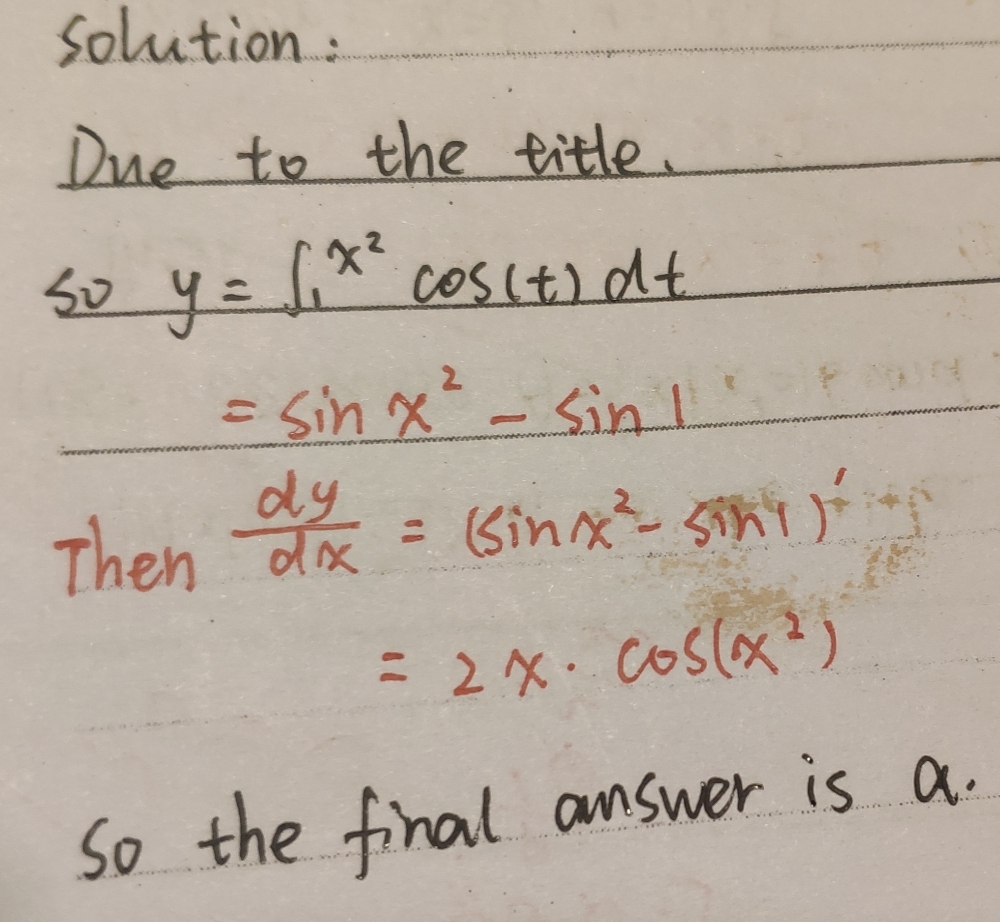 Solution:
Due to the title.
So y = ∫₁^x² cos(t) dt
= sin x² - sin 1
Then dy/dx = (sin x² - sin 1)'
= 2x · cos(x²)
So the final answer is a.